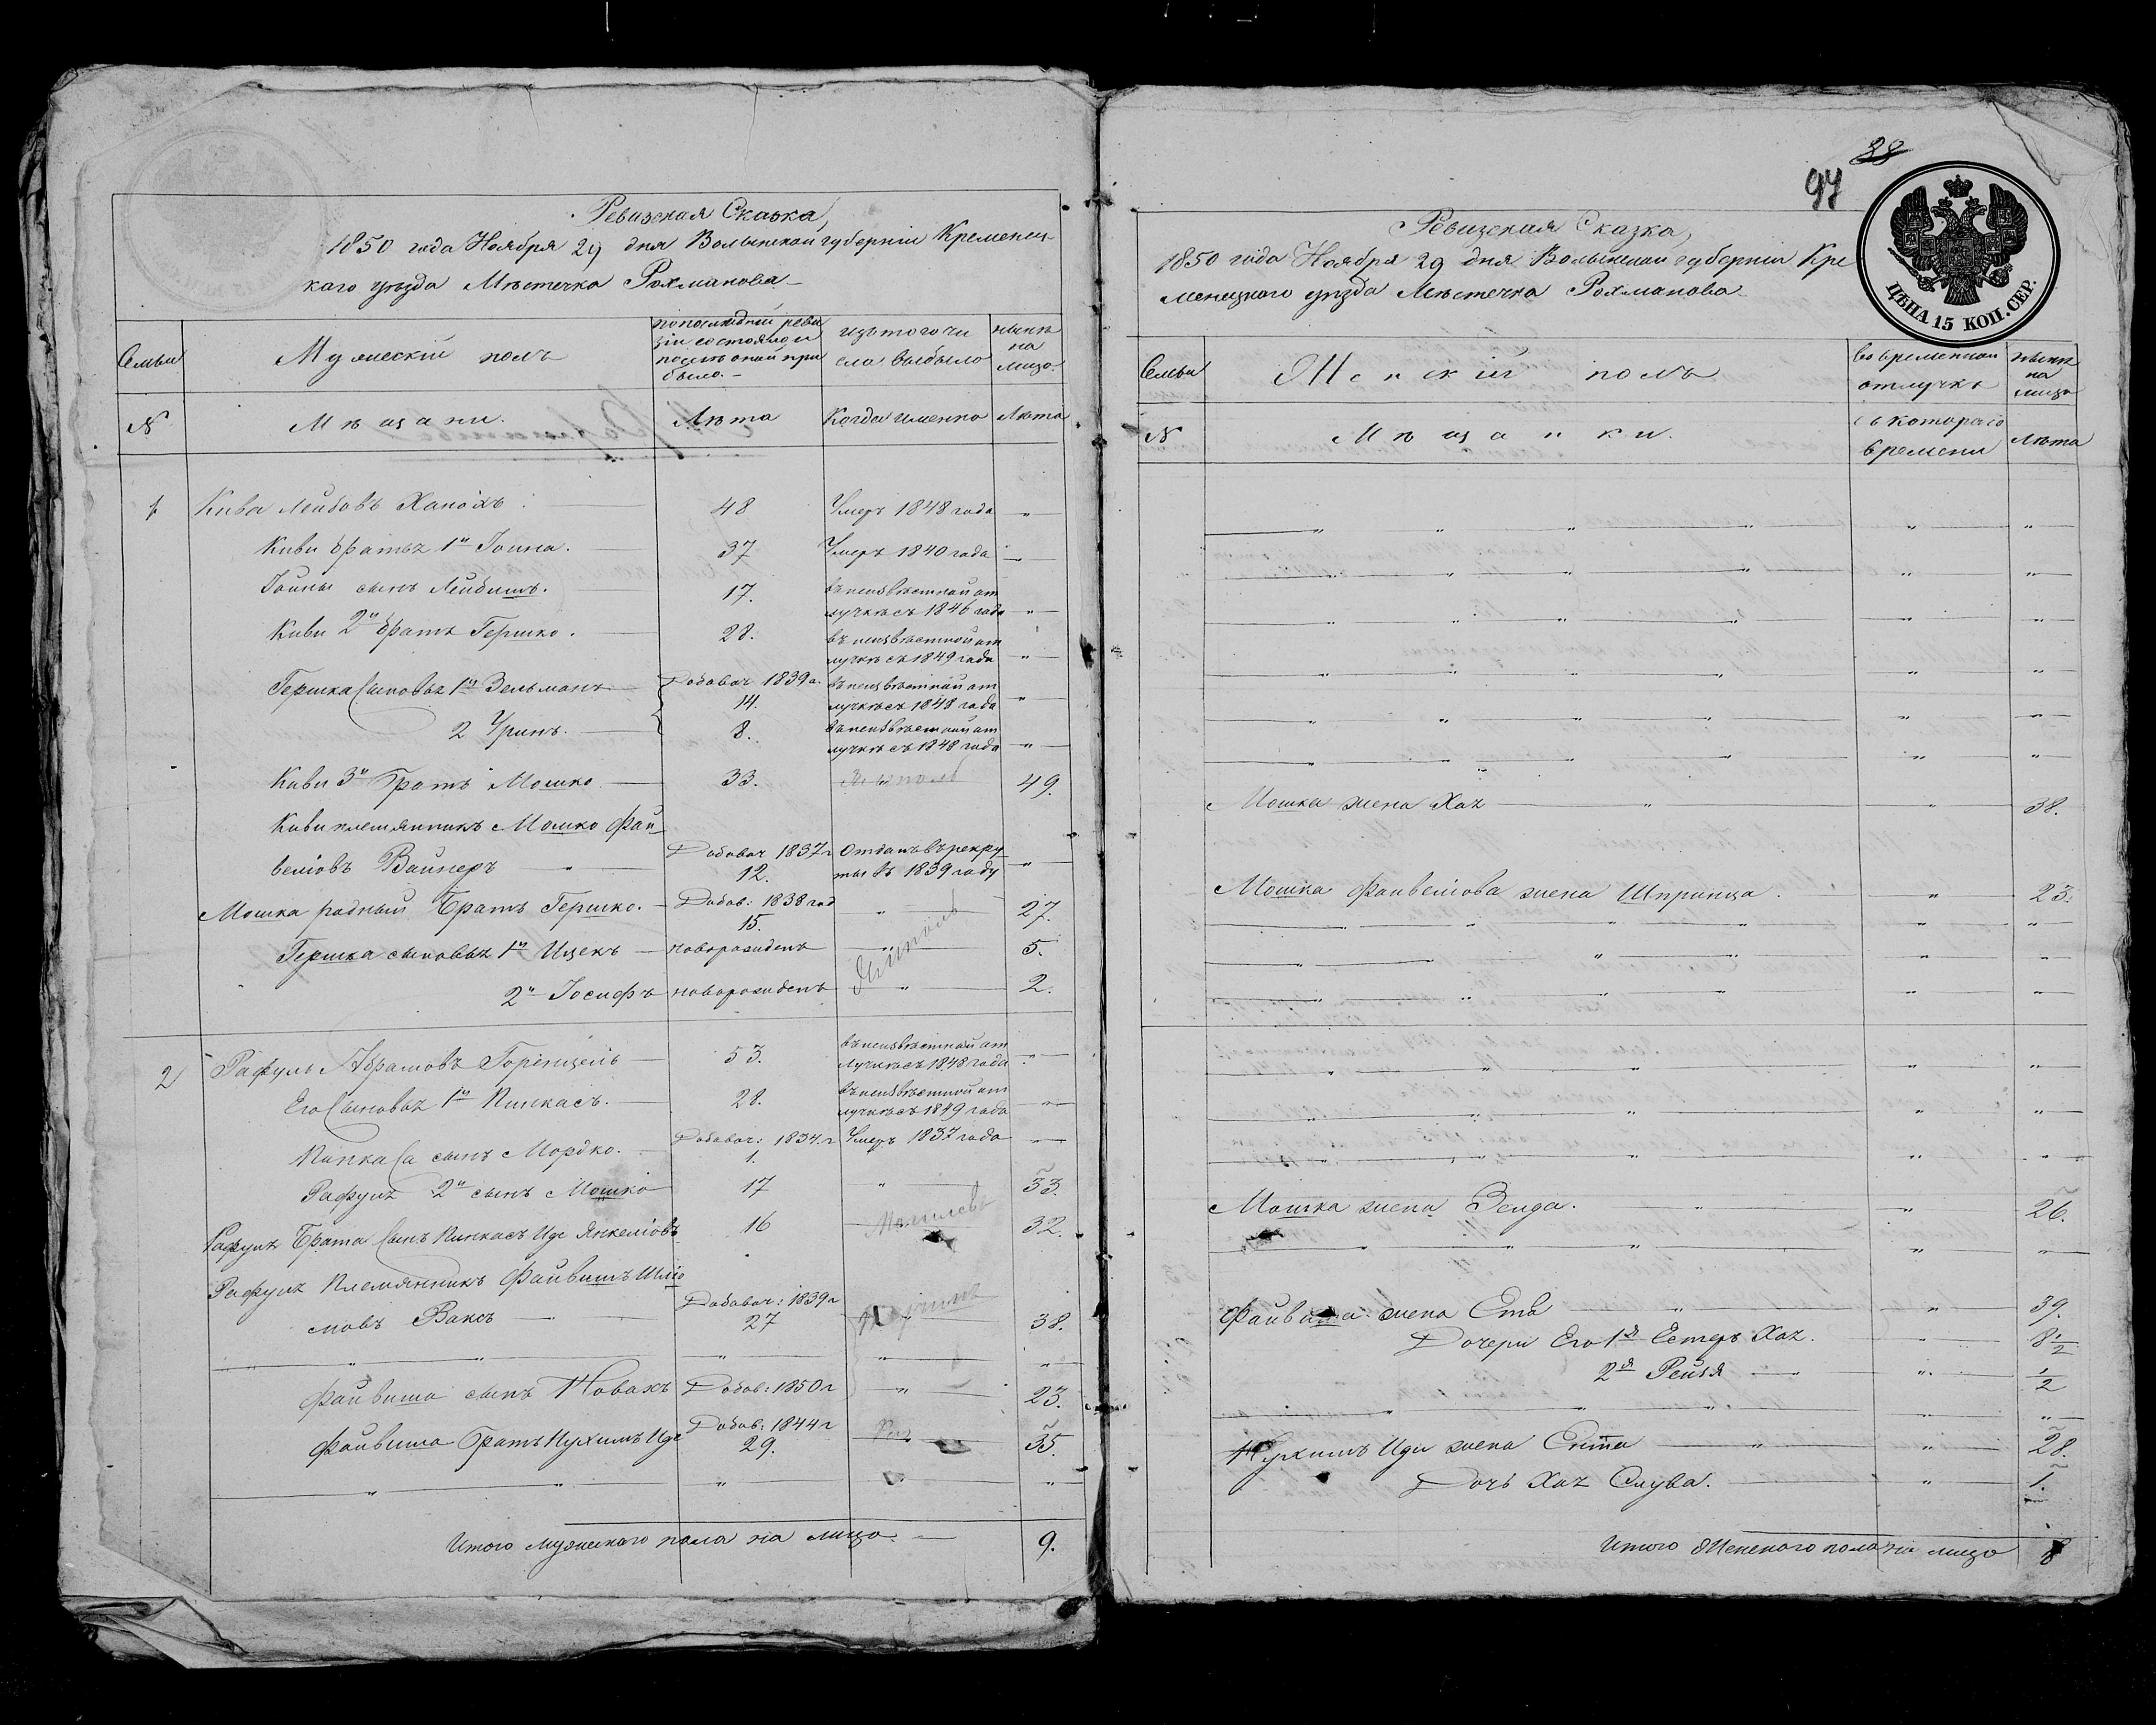 Ревизская Сказка,
1850 года Ноября 29 дня Волынской губерніи Кременец-
каго уѣзда Мѣстечка Рохманова
Семьи
Мужескій полъ
по последней реви
зіи состояло и
послѣ оной при
было.
изъ того чи
сла выбыло
нынѣ
на
лицо.
№
Мѣщани.
Лѣта
Когда именно
Лѣта
1
Кива Лейбовъ Ханохъ 48 Умеръ 1848 года "
Киви братъ 1й Іоина. 37 Умеръ 1840 года
Іоины сынъ Лейбишъ. 17. въ неизвѣстной от
лучкѣ съ 1846 года "
Киви 2й братъ Гершко. 28. въ неизвѣстной от
лучкѣ съ 1849 года "
Гершка Сыновья 1й Зельманъ Добавоч 1839 г. въ неизвѣстной от
14. лучкѣ съ 1848 года "
2 Уринъ. 8. въ неизвѣстной от
лучкѣ съ 1848 года "
Киви 3й братъ Мошко 33. 49.
Киви племянникъ Мошко Фай
веліовъ Вайнеръ " Добавоч 1837 г Отданъ въ рекру
12. ты въ 1839 году "
Мошка родный братъ Гершко. Добав: 1838 год " 27.
15.
Гершка сыновья 1й Ицекъ новорожденъ " 5.
2й Іосифъ новорожденъ " 2.
2
Рафуль Абрамовъ 53. въ неизвѣстной от
лучкѣ съ 1848 года "
Его Сыновья 1й Пинкасъ. 28. въ неизвѣстной от
лучкѣ съ 1849 года "
Добавоч: 1834. г Умеръ 1837 года "
Пинкаса сынъ Мордко. 1.
Рафуля 2й сынъ Мошко 17 " 33.
Рафуля Брата Сынъ Пинкасъ Иде Янкеліовъ 16 32.
Рафуля Племянникъ Файвишъ Шліо
мовъ Ваксъ Добавоч: 1839 г
27 38.
" " " " " "
Файвиша сынъ Новахъ Добов: 1850 г " 23.
Файвиша братъ Нухимъ Иде Добов: 1844 г
29. 35.
" " " "
Итого мужескаго пола на лицо 9.
38
97
ЦѢНА 15 КОП. СЕР.
Ревизская Сказка,
1850 года Ноября 29 дня Волынской губерніи Кре
менецкаго уѣзда Мѣстечка Рохманова
Семьи
Женскій полъ
во временной
отлучкѣ
нынѣ
на
лицо
№
Мѣщанки.
съ котораго
времени
Лѣта
Мошка жена Хая " " 38.
Мошка Файвеліова жена Шпринца. " 23.
Мошка жена Зелда. " 26.
Файвиша жена Ета " " 39.
Дочери Его 1я Естеръ Хая. " 8 1/2
2я Рейзя " 1/2
Нухимъ Иди жена Ситта " 28.
Дочь Хая Слува. " 1.
Итого Женскаго пола на лицо 8